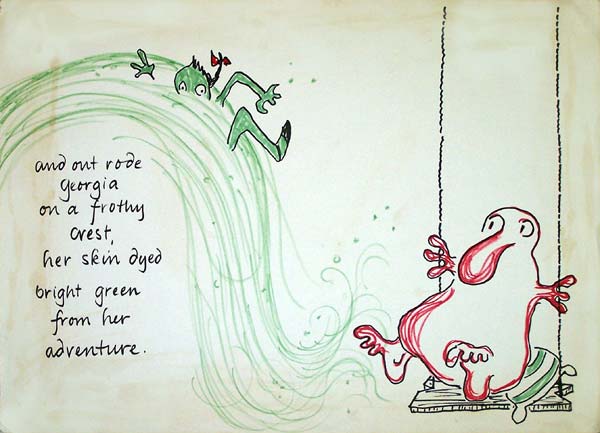 and out rode
Georgia
on a frothy
crest,
her skin dyed
bright green
from her
adventure.